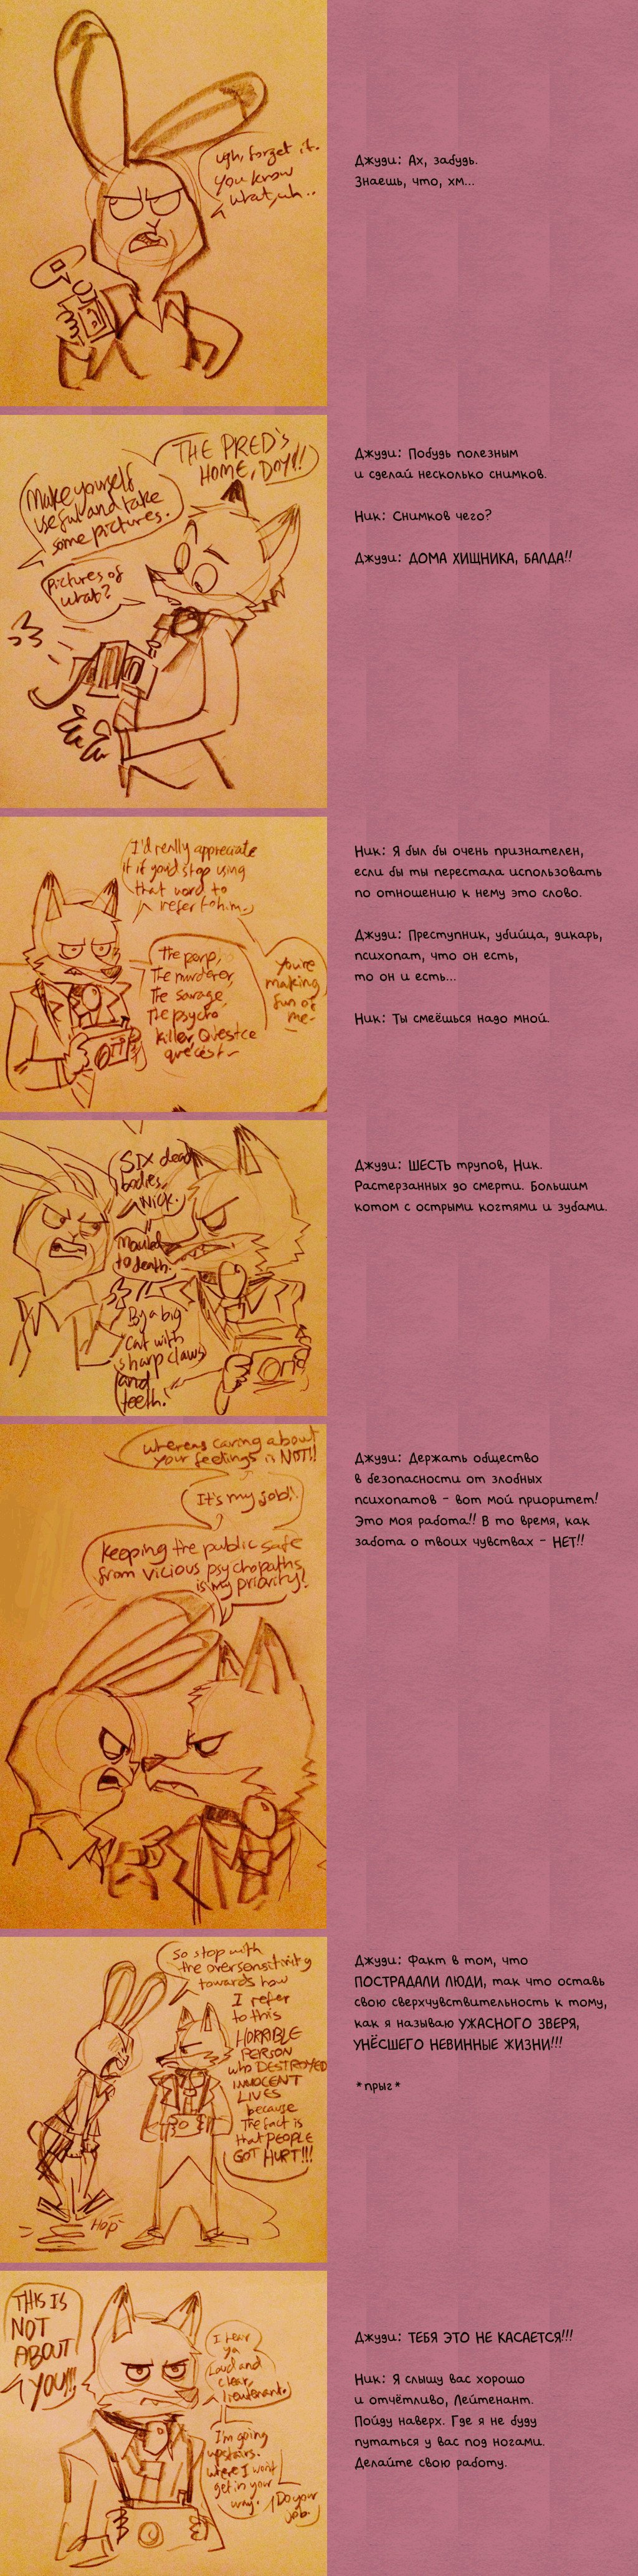 ugh, forget it.
you know
what, uh..
Джуди: Ах, забудь.
Знаешь, что, хм...
THE PRED'S
HOME, DOY!!!
Make yourself
useful and take
some pictures.
Pictures of
what?
Джуди: Побудь полезным
и сделай несколько снимков.
Ник: Снимков чего?
Джуди: ДОМА ХИЩНИКА, БАЛДА!!
I'd really appreciate
it if you'd stop using
that word to
refer to him.
The perp,
The murderer,
The savage,
The psycho
killer,
You're
making
fun of
me-
Ник: Я был бы очень признателен,
если бы ты перестала использовать
по отношению к нему это слово.
Джуди: Преступник, убийца, дикарь,
психопат, что он есть,
то он и есть...
Ник: Ты смеёшься надо мной.
SIX dead
bodies,
NICK.
Mauled
to death.
By a big
cat with
sharp claws
and
teeth.
Джуди: ШЕСТЬ трупов, Ник.
Растерзанных до смерти. Большим
котом с острыми когтями и зубами.
whereas caring about
your feelings is NOT!!
It's my job!!
Keeping the public safe
from vicious psychopaths
is my priority!
Джуди: Держать общество
в безопасности от злобных
психопатов - вот мой приоритет!
Это моя работа!! В то время, как
забота о твоих чувствах - НЕТ!!
So stop with
the oversensitivity
towards how
I refer
to this
HORRIBLE
PERSON
who DESTROYED
INNOCENT
LIVES
because
The fact is
that PEOPLE
GOT HURT!!!
Hop
Джуди: Факт в том, что
ПОСТРАДАЛИ ЛЮДИ, так что оставь
свою сверхчувствительность к тому,
как я называю УЖАСНОГО ЗВЕРЯ,
УНЁСШЕГО НЕВИННЫЕ ЖИЗНИ!!!
*прыг*
THIS IS
NOT
ABOUT
YOU!!!
I hear
ya
Loud and
clear,
lieutenant.
I'm going
upstairs.
where I won't
get in your
way.
Do your
job.
Джуди: ТЕБЯ ЭТО НЕ КАСАЕТСЯ!!!
Ник: Я слышу вас хорошо
и отчётливо, Лейтенант.
Пойду наверх. Где я не буду
путаться у вас под ногами.
Делайте свою работу.